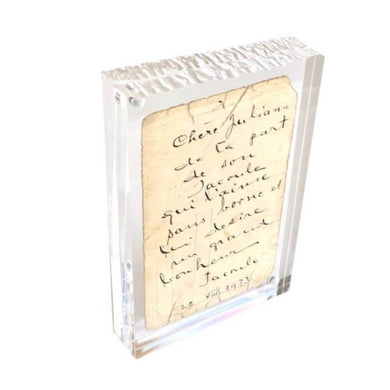 à
Chère Juliana
de la part
de son
Jacoule
qui l'aime
sans borne et
lui desire
un grand
bonheur
Jacoule
22 VIII 1923